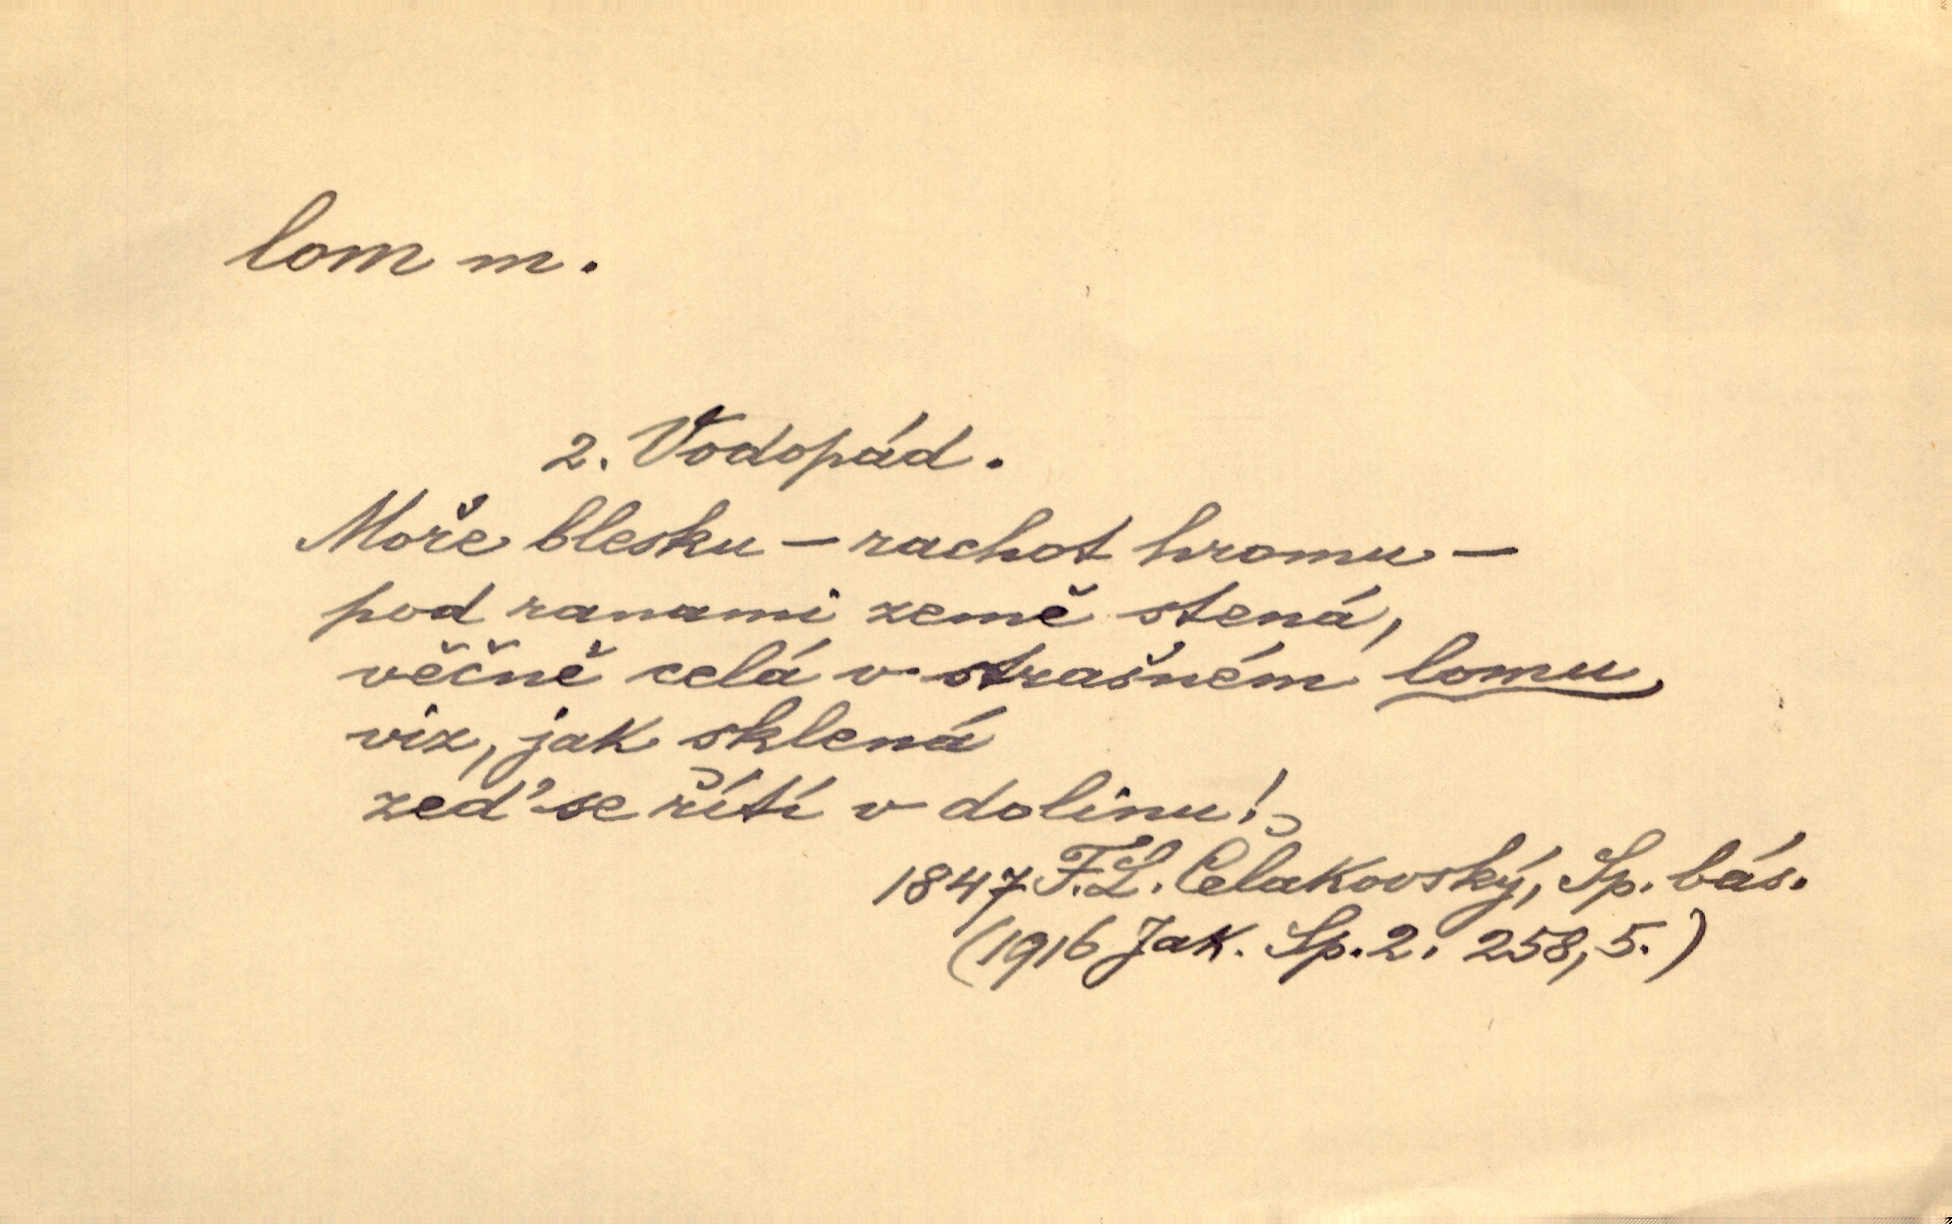 lom m.
2. Vodopád.
Moře blesku – rachot hromu –
pod ranami země stená,
věčně celá v strašném lomu,
viz, jak sklená
zeď se řítí v dolinu!
1847 F.L. Čelakovský, Sp. bás.
(1916 Jak. Sp. 2. 258, 5.)